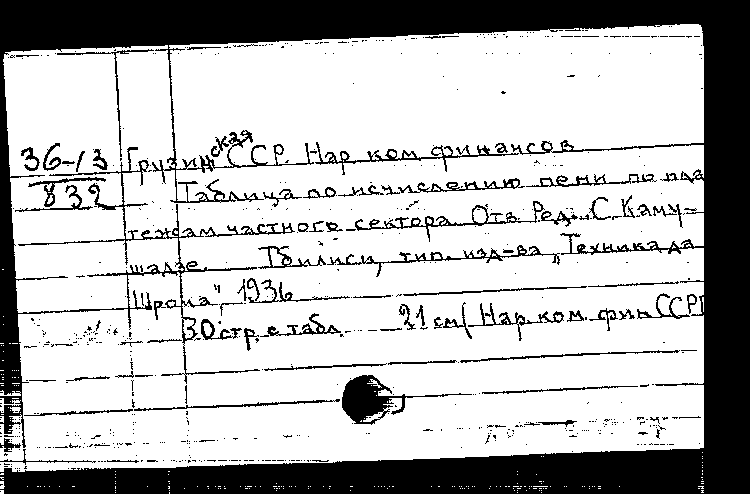 36-13
832
Грузинская ССР. Нар. ком. финансов
Таблица по исчислению пени по пла
тежам частного сектора Отв. Ред. С. Каму-
шадзе. Тбилиси, тип. изд-ва „Техника да
Шрома", 1936
30 стр. с табл. 21 см (Нар. ком. фин ССРГ